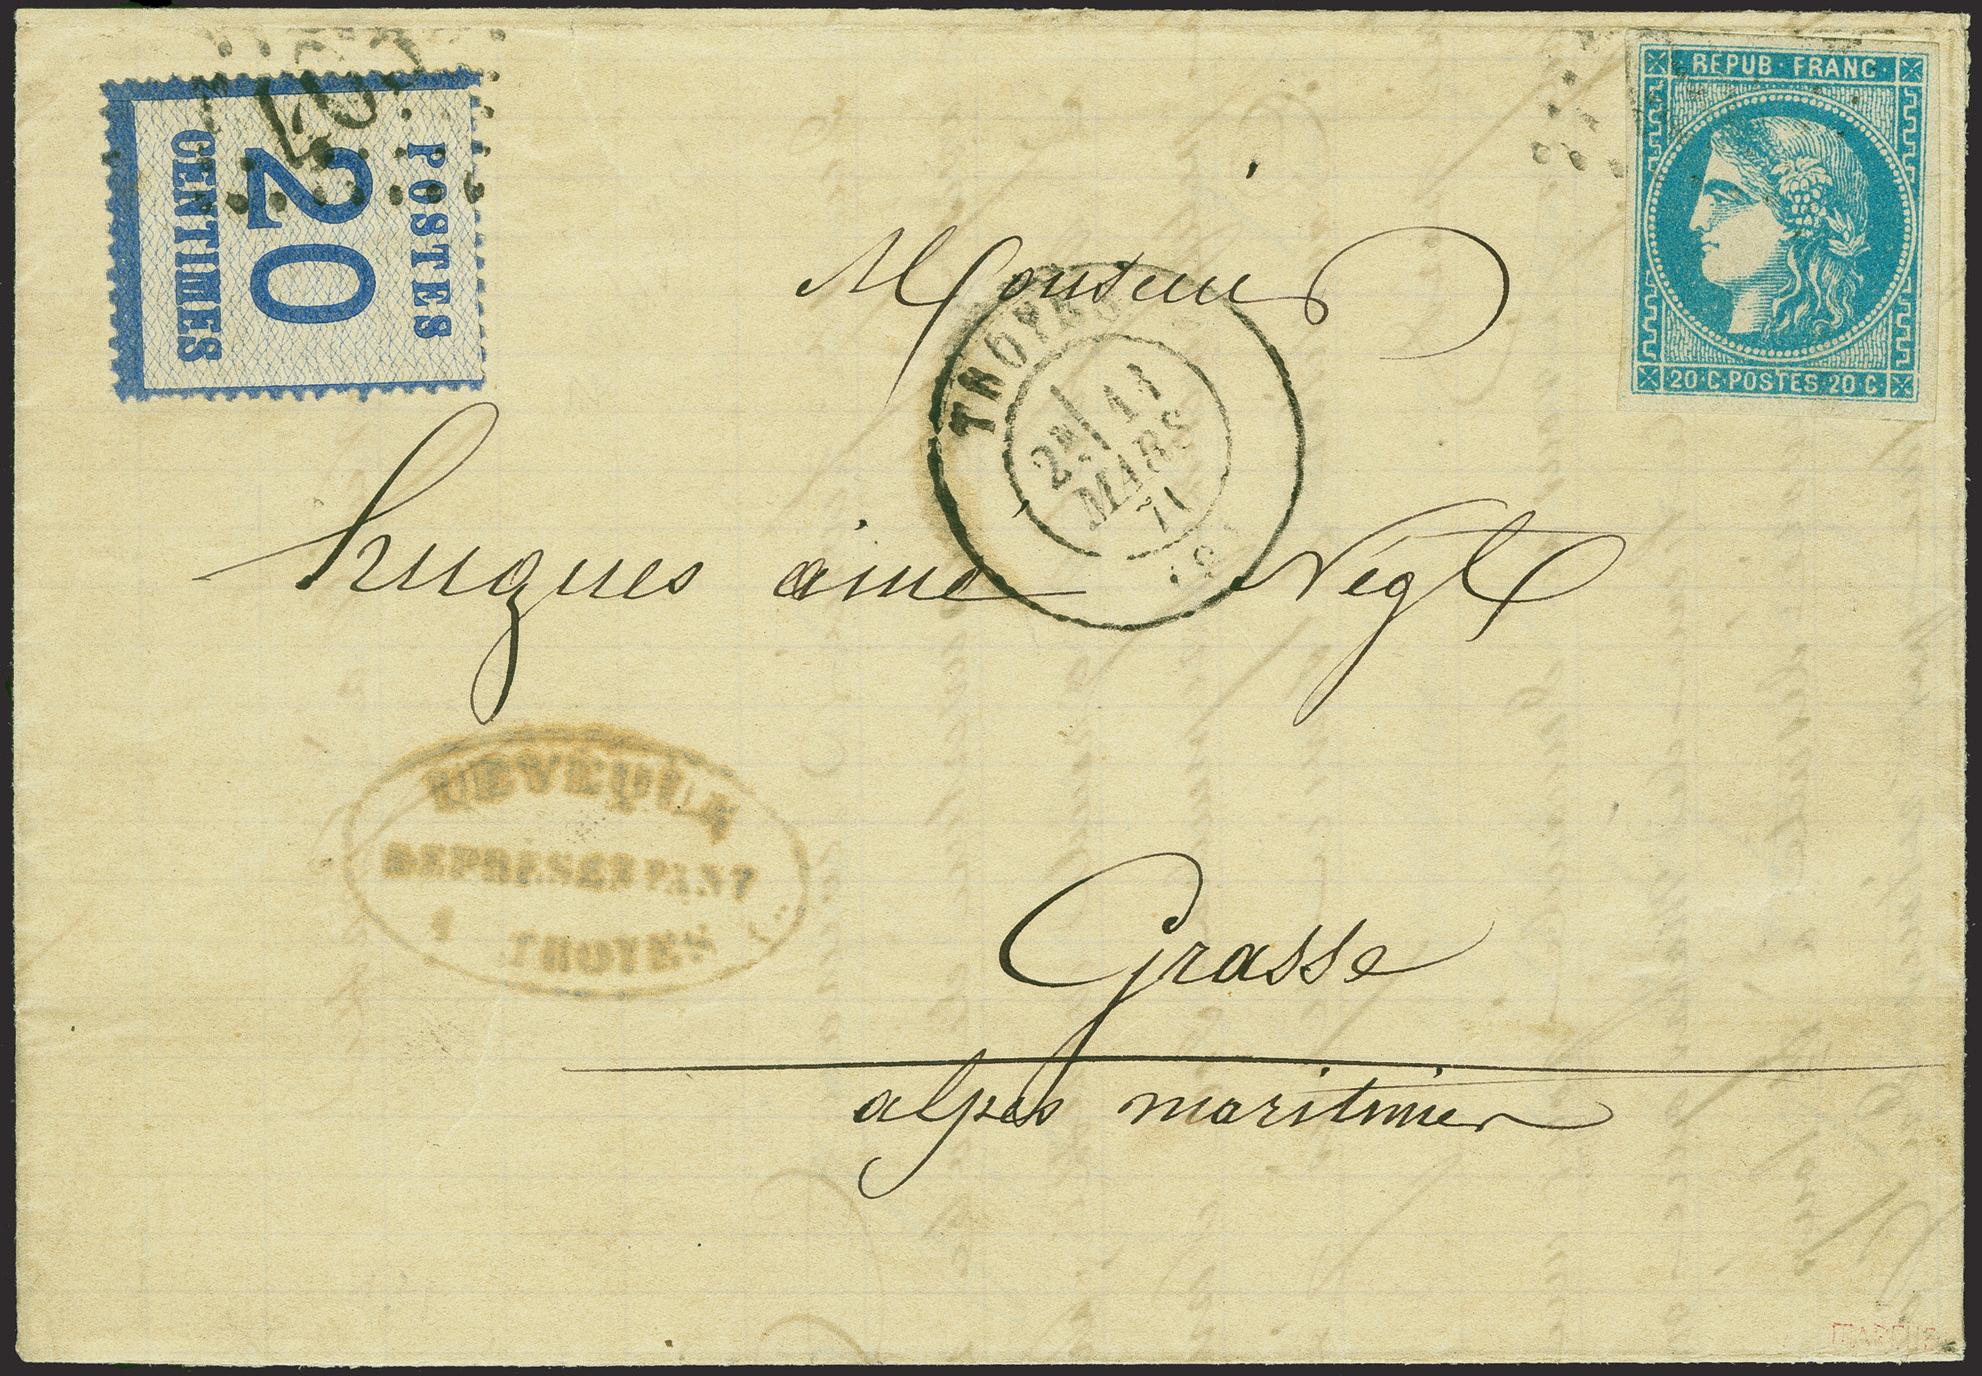 POSTES
20
CENTIMES
REPUB·FRANC·
20·C·POSTES·20·C·
Monsieur
TROYES
2E 13
MARS
71
hugues aîné Négt
REPRESENTANT
TROYES
Grasse
alpes maritimes